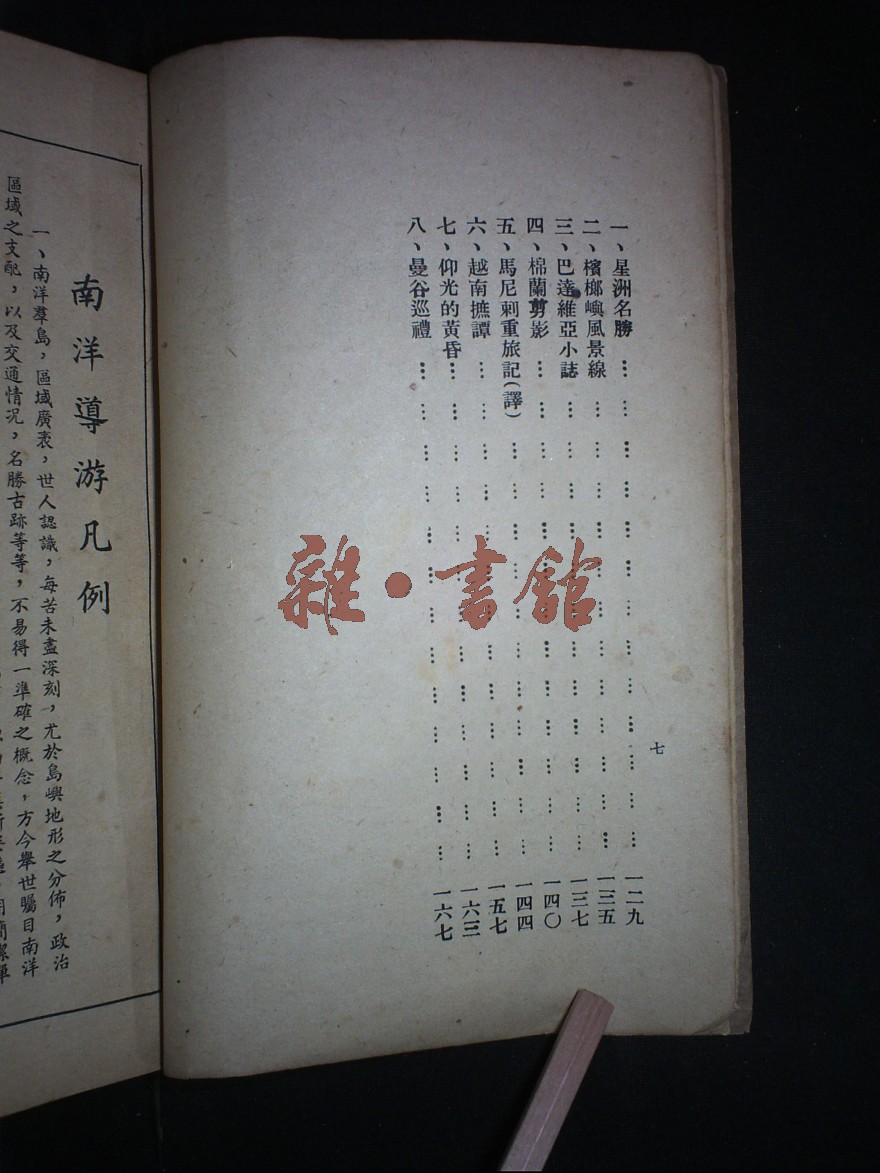 一、星洲名勝……一二九
二、檳榔嶼風景線……一三五
三、巴達維亞小誌……一三七
四、棉蘭剪影……一四〇
五、馬尼剌重旅記(譯)……一四四
六、越南摭譚……一五七
七、仰光的黃昏……一六三
八、曼谷巡禮……一六七
七
南洋導游凡例
一、南洋羣島，區域廣袤，世人認識，每苦未盡深刻，尤於島嶼地形之分佈，政治
區域之支配，以及交通情况，名勝古跡等等，不易得一準確之概念，方今舉世矚目南洋
雜·書館